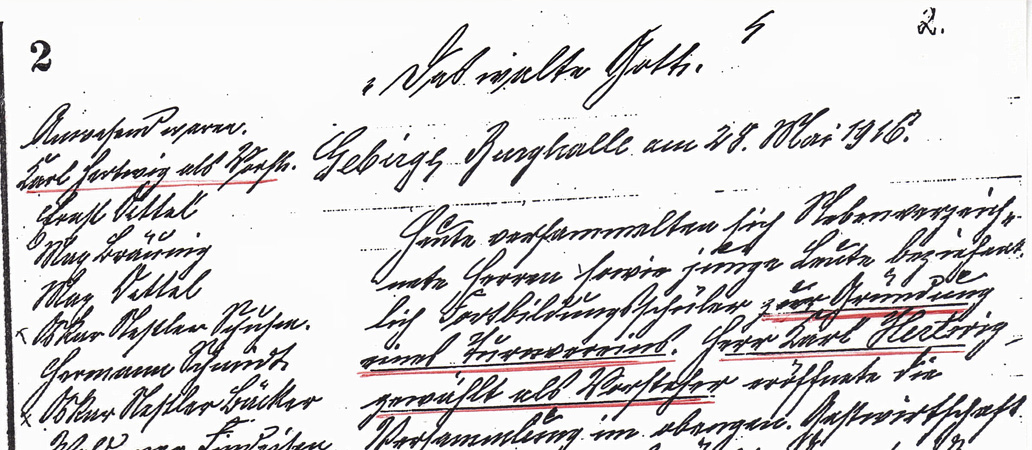 2
2.
„Das walte Gott".
Anwesend waren.
Karl Hertwig als Vorsth.
Ernst Oettel
Max Bräunig
Max Oettel
Oskar Nestler Schuhm.
Hermann Schmidt
Oskar Nestler Bäcker
Gebirge, Burghalle am 28. Mai 1916.
Heute versammelten sich Nebenverzeich-
nete Herren sowie junge Leute beziehent-
lich Fortbildungsschüler zur Gründung
eines Turnvereins. Herr Karl Hertwig,
gewählt als Vorsteher eröffnete die
Versammlung im obengen. Gastwirtschaft